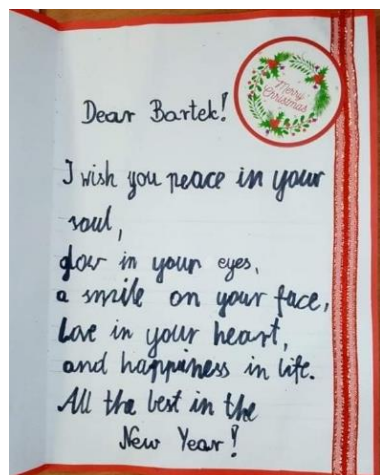 Merry
Christmas
Dear Bartek!
I wish you peace in your
soul,
glow in your eyes,
a smile on your face,
Love in your heart,
and happiness in life.
All the best in the
New Year!